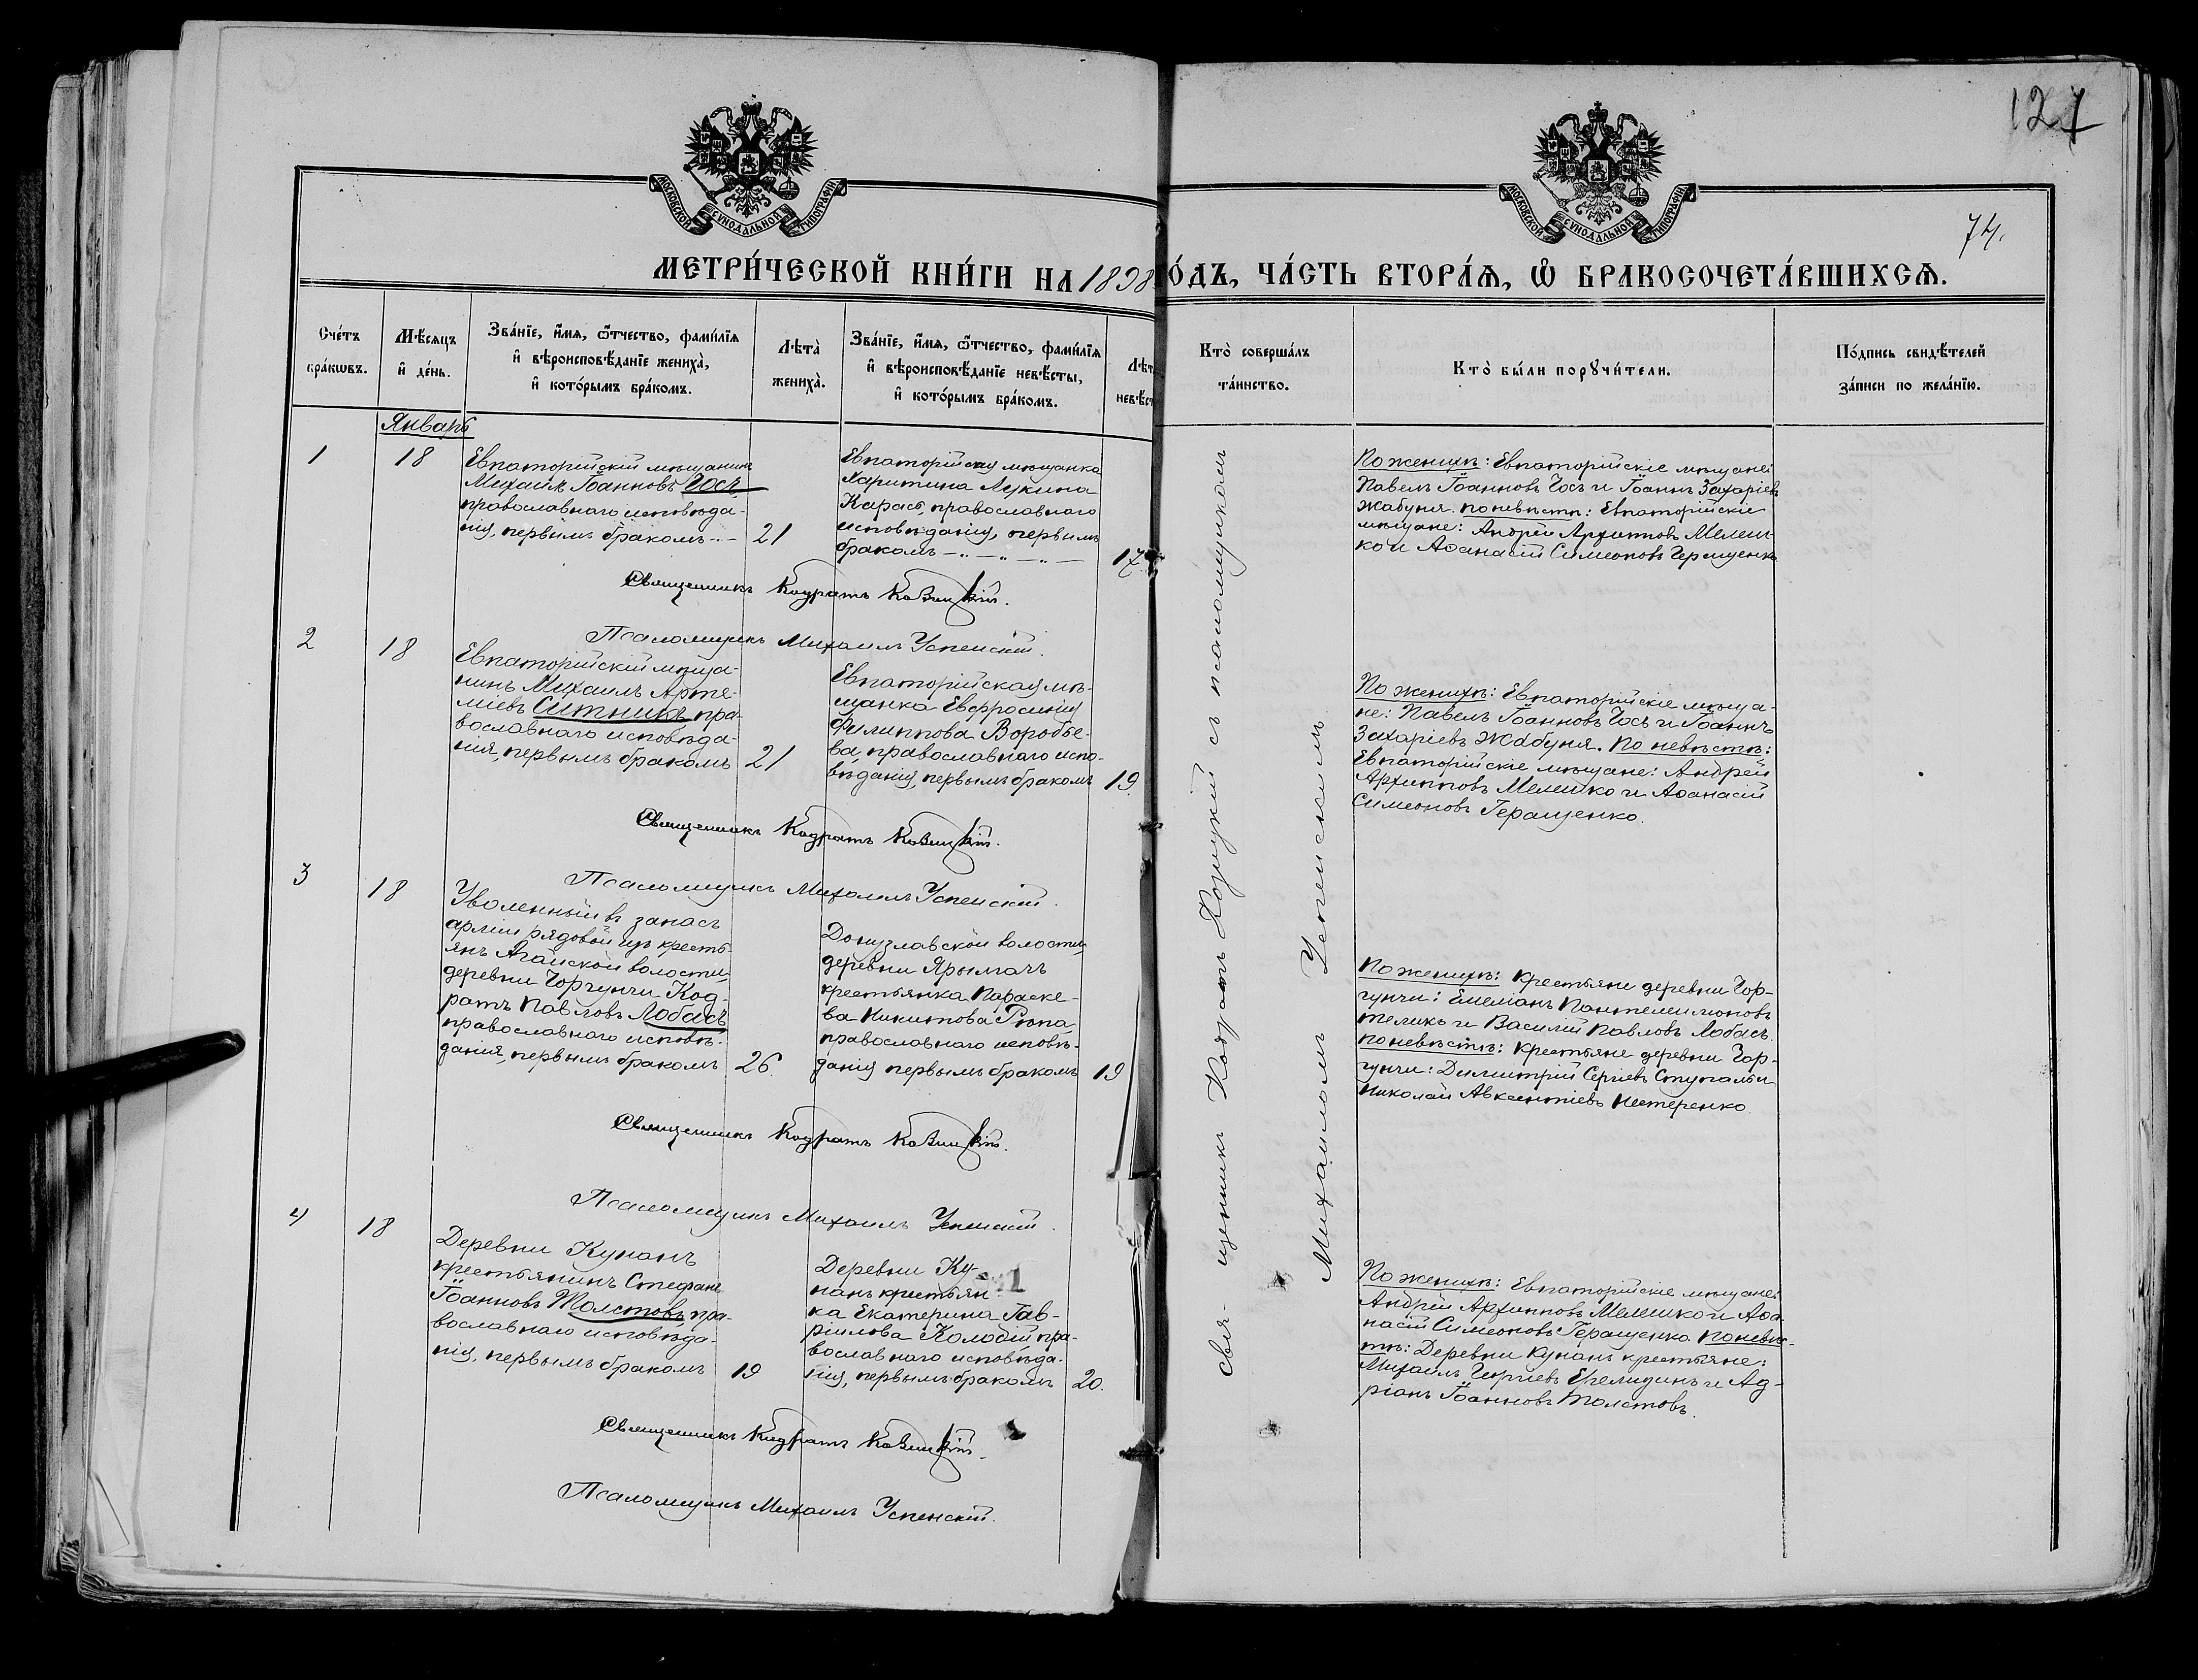 127
74.
МОСКОВСКОЙ СѴНОДАЛЬНОЙ ТИПОГРАФІИ
МОСКОВСКОЙ СѴНОДАЛЬНОЙ ТИПОГРАФІИ
МЕТРИ́ЧЕСКОЙ КНИ́ГИ НА 1898 ГО́ДЪ, ЧА́СТЬ ВТОРА́Я, Ѽ БРАКОСОЧЕТА́ВШИХСЯ.
Сче́тъ
бра́кѡвъ.
Мѣ́сяцъ
и҆ де́нь.
Зва́нїе, и҆́мя, ѻ҆́тчество, фами́лїя
и҆ вѣроисповѣ́данїе жениха̀,
и҆ кото́рымъ бра́комъ.
Лѣта̀
жениха̀.
Зва́нїе, и҆́мя, ѻ҆́тчество, фами́лїя
и҆ вѣроисповѣ́данїе невѣ́сты,
и҆ кото́рымъ бра́комъ.
Лѣт
невѣ́ст
Кто̀ соверша́лъ
та́инство.
Кто̀ бы́ли порꙋчи́тели.
По́дпись свидѣ́телей
за́писи по жела́нїю.
Январь
1
18
Евпаторійскій мѣщанинъ
Михаилъ Іоанновъ Гось
православнаго исповѣда-
нія, первымъ бракомъ
21
Евпаторійская мѣщанка
Харитина Лукина
Карась, православнаго
исповѣданія, первымъ
бракомъ
17
По женихѣ: Евпаторійскіе мѣщане:
Павелъ Іоанновъ Гось и Іоаннъ Захаріевъ
Жабуня. по невѣстѣ: Евпаторійскіе
мѣщане: Андрей Архиповъ Мелеш-
ко и Аѳанасій Симеоновъ Геращенко
Священникъ Кодратъ Козицкій.
Псаломщикъ Михаилъ Успенскій.
2
18
Евпаторійскій мѣща-
нинъ Михаилъ Арте-
міевъ Ситникъ пра-
вославнаго исповѣда-
нія, первымъ бракомъ
21
Евпаторійская мѣ-
щанка Евфросинія
Филиппова Воробье-
ва, православнаго испо-
вѣданія, первымъ бракомъ
19.
По женихѣ: Евпаторійскіе мѣща-
не: Павелъ Іоанновъ Гось и Іоаннъ
Захаріевъ Жабуня. По невѣстѣ:
Евпаторійскіе мѣщане: Андрей
Архипповъ Мелешко и Аѳанасій
Симеоновъ Геращенко.
Священникъ Кодратъ Козицкій.
Псаломщикъ Михаилъ Успенскій.
3
18
Уволенный въ запасъ
арміи рядовой изъ кресть-
янъ Агайской волости,
деревни Горгунчи Код-
ратъ Павловъ Лобасъ
православнаго исповѣ-
данія, первымъ бракомъ
26.
Донузлавской волости,
деревни Ярылгачъ
крестьянка Параске-
ва Никитова Рюпа,
православнаго исповѣ-
данія первымъ бракомъ
19
По женихѣ: крестьяне деревни Гор-
гунчи: Емеліанъ Пантелеимоновъ
Теликъ и Василій Павловъ Лобасъ.
по невѣстѣ: крестьяне деревни Гор-
гунчи: Димитрій Сергіевъ и
Николай Авксентіевъ Нестеренко.
Священникъ Кодратъ Козицкій.
Псаломщикъ Михаилъ Успенскій.
4
18
Деревни Кунанъ
крестьянинъ Стефанъ
Іоанновъ Толстовъ, пра-
вославнаго исповѣда-
нія, первымъ бракомъ
19
Деревни Ку-
нанъ крестьян-
ка Екатерина Гав-
ріилова Колодій пра-
вославнаго исповѣда-
нія, первымъ бракомъ
20.
По женихѣ: Евпаторійскіе мѣщане:
Андрей Архипповъ Мелешко и Аѳа-
насій Симеоновъ Геращенко. по невѣс-
тѣ: Деревни Кунанъ крестьяне:
Михаилъ Георгіевъ и Ад-
ріанъ Іоанновъ Толстовъ.
Священникъ Кодратъ Козицкій.
Псаломщикъ Михаилъ Успенскій.
Свя- щенникъ Кодратъ Козицкій съ псаломщикомъ
Михаиломъ Успенскимъ